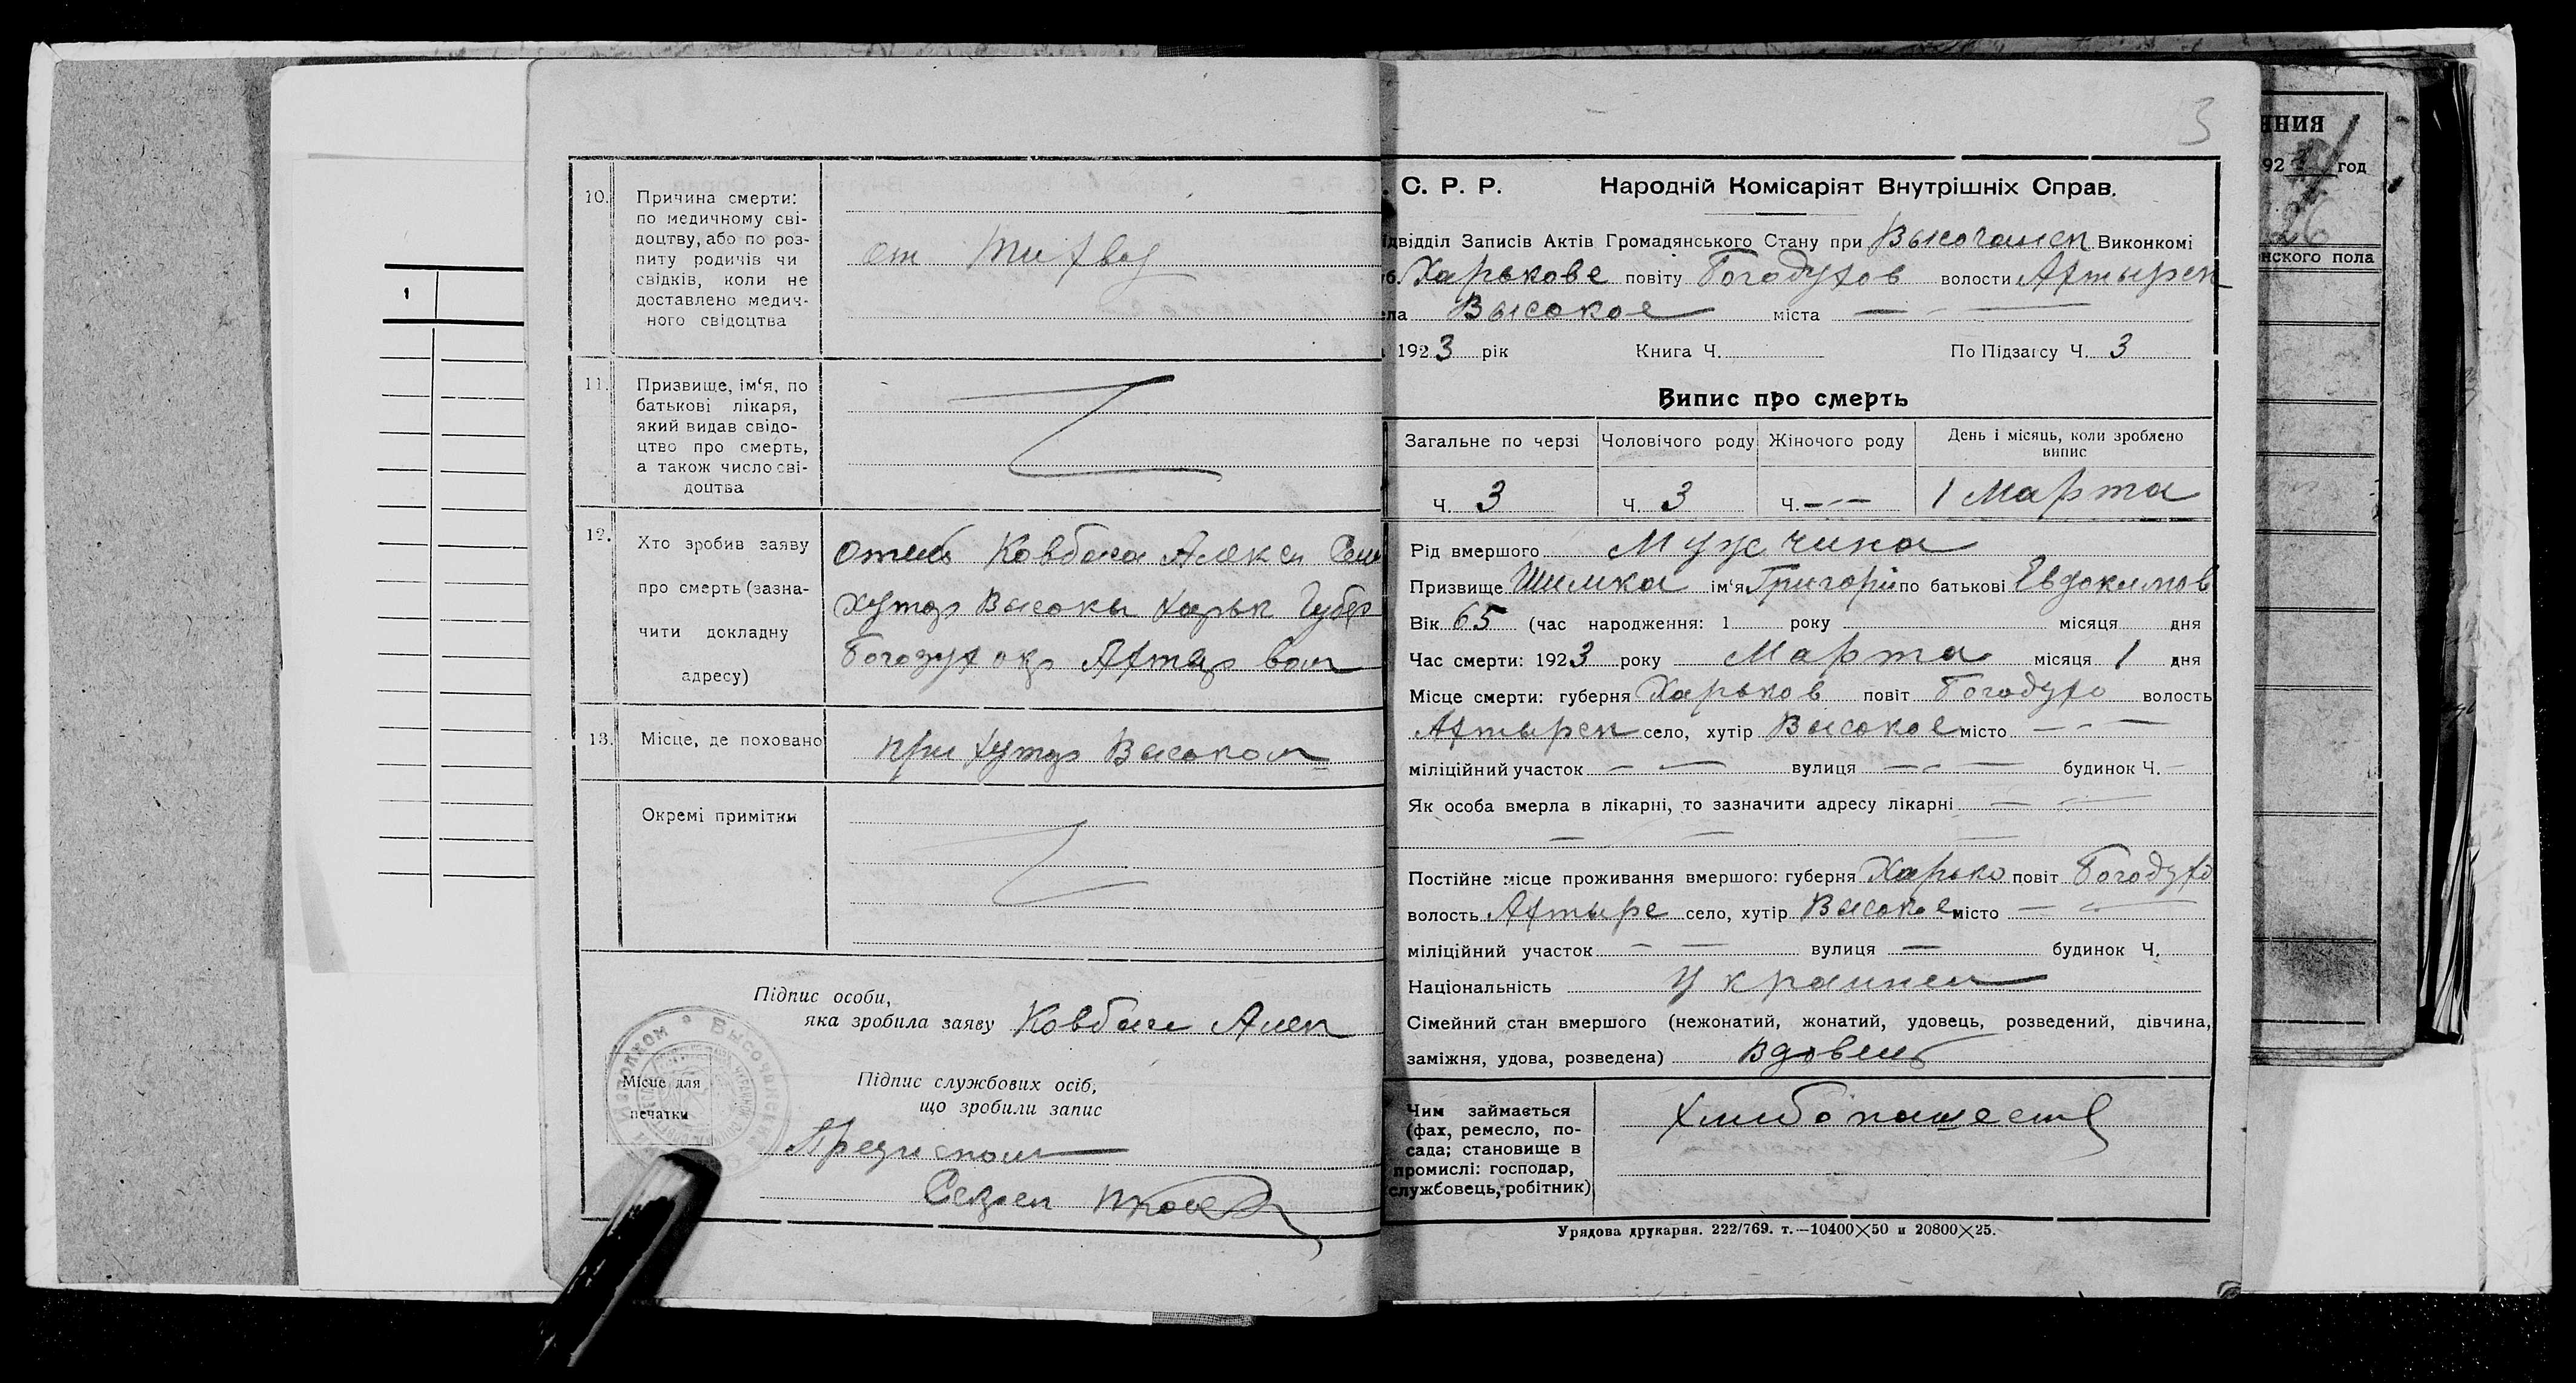 1
10.
Причина смерти:
по медичному сві-
доцтву, або по роз-
питу родичів чи
свідків, коли не
доставлено медич-
ного свідоцтва
от Тифва
11.
Призвище, ім'я, по
батькові лікаря,
який видав свідо-
цтво про смерть,
а також число сві-
доцтва
12.
Хто зробив заяву
про смерть (зазна-
чити докладну
адресу)
отець Ковбаса Алекси Сем
Хутор Высокы Харьк Губер
Богодух окр Ахтыр вол
13.
Місце, де поховано
при хутор Высоком
Окремі примітки
Підпис особи,
яка зробила заяву Ковбаса Алек
Місце для
печатки
Підпис службових осіб,
що зробили запис
Предисполк
Секрет
3
. С. Р. Р. Народній Комісаріят Внутрішніх Справ.
ідвідділ Записів Актів Громадянського Стану при Высочанск Виконкомі
уб. Харькове повіту Богодухов волости Ахтырск
ела Высокое міста — —
192 3 рік Книга Ч. По Підзагсу Ч. 3
Випис про смерть
Загальне по черзі Чоловічого роду Жіночого роду День і місяць, коли зроблено
випис
Ч. 3 Ч. 3 Ч. — — 1 Марта
Рід вмершого Мужчина
Призвище Шимка ім'я Григорі по батькові Евдокимов
Вік 65 (час народження: 1 року місяця дня
Час смерти: 1923 року Марта місяця 1 дня
Місце смерти: губерня Харьков повіт Богодухо волость
Ахтырск село, хутір Высокое місто — — —
міліційний участок — — вулиця — — — будинок Ч. —
Як особа вмерла в лікарні, то зазначити адресу лікарні — —
— — —
Постійне місце проживання вмершого: губерня Харько повіт Богодухо
волость Ахтыре село, хутір Высокое місто — —
міліційний участок — — вулиця — будинок Ч.
Національність Украинец
Сімейний стан вмершого (нежонатий, жонатий, удовець, розведений, дівчина,
заміжня, удова, розведена) Вдовець
Чим займається
(фах, ремесло, по-
сада; становище в
промислі: господар,
службовець, робітник)
Хлибопашеств
Урядова друкарня. 222/769. т.—10400×50 и 20800×25.
ння
192 год
26
нского пола